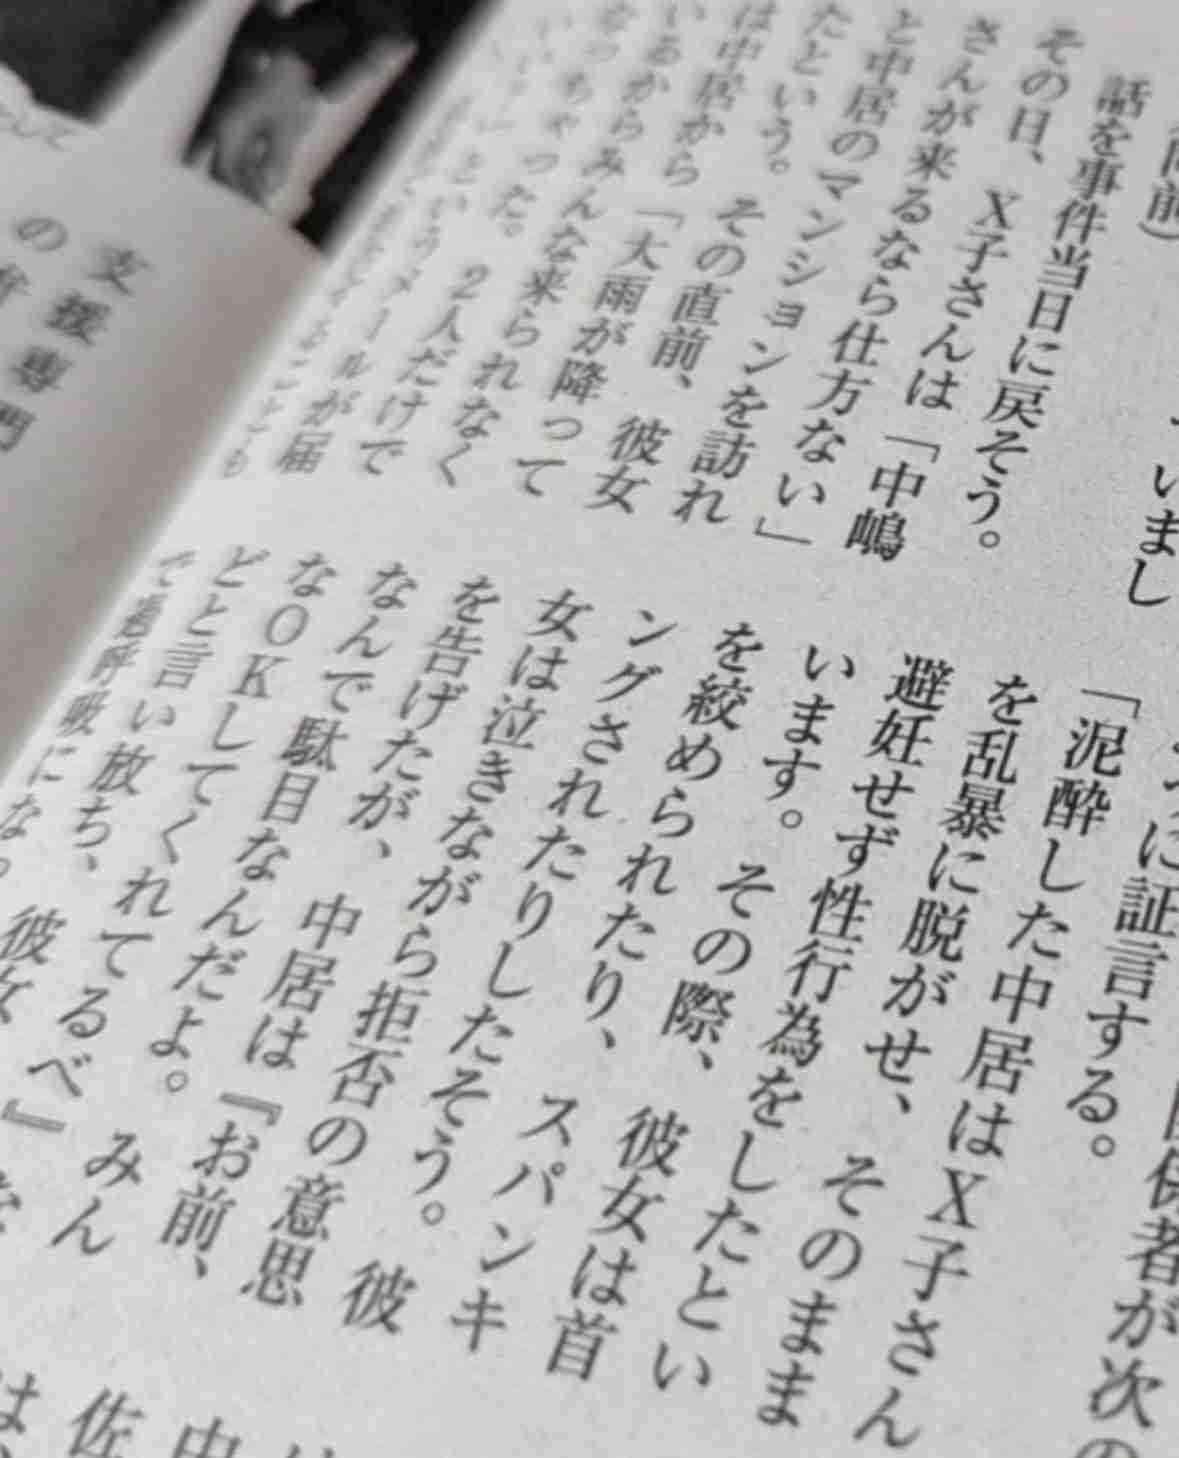 前)
いまし
話を事件当日に戻そう。
その日、X子さんは「中嶋
さんが来るなら仕方ない」
と中居のマンションを訪れ
たという。その直前、彼女
は中居から「大雨が降って
いるからみんな来られなく
なっちゃった。2人だけで
というメールが届
ることも
係者が次の
に証言する。
「泥酔した中居はX子さん
を乱暴に脱がせ、そのまま
避妊せず性行為をしたとい
います。その際、彼女は首
を絞められたり、スパンキ
ングされたりしたそう。彼
女は泣きながら拒否の意思
を告げたが、中居は『お前、
なんで駄目なんだよ。みん
なOKしてくれてるべ』
どと言い放ち、彼女
で過呼吸にな
中
佐
は、
支援専門
の